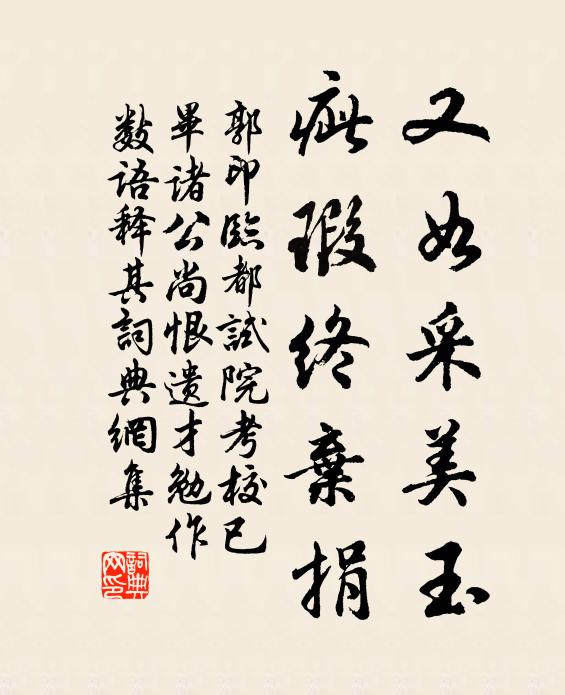 又如采美玉
疵瑕终棄捐
郭印臨都試院考校已
畢諸公尚恨遺才勉作
数语释其詞典網集
詞典网印